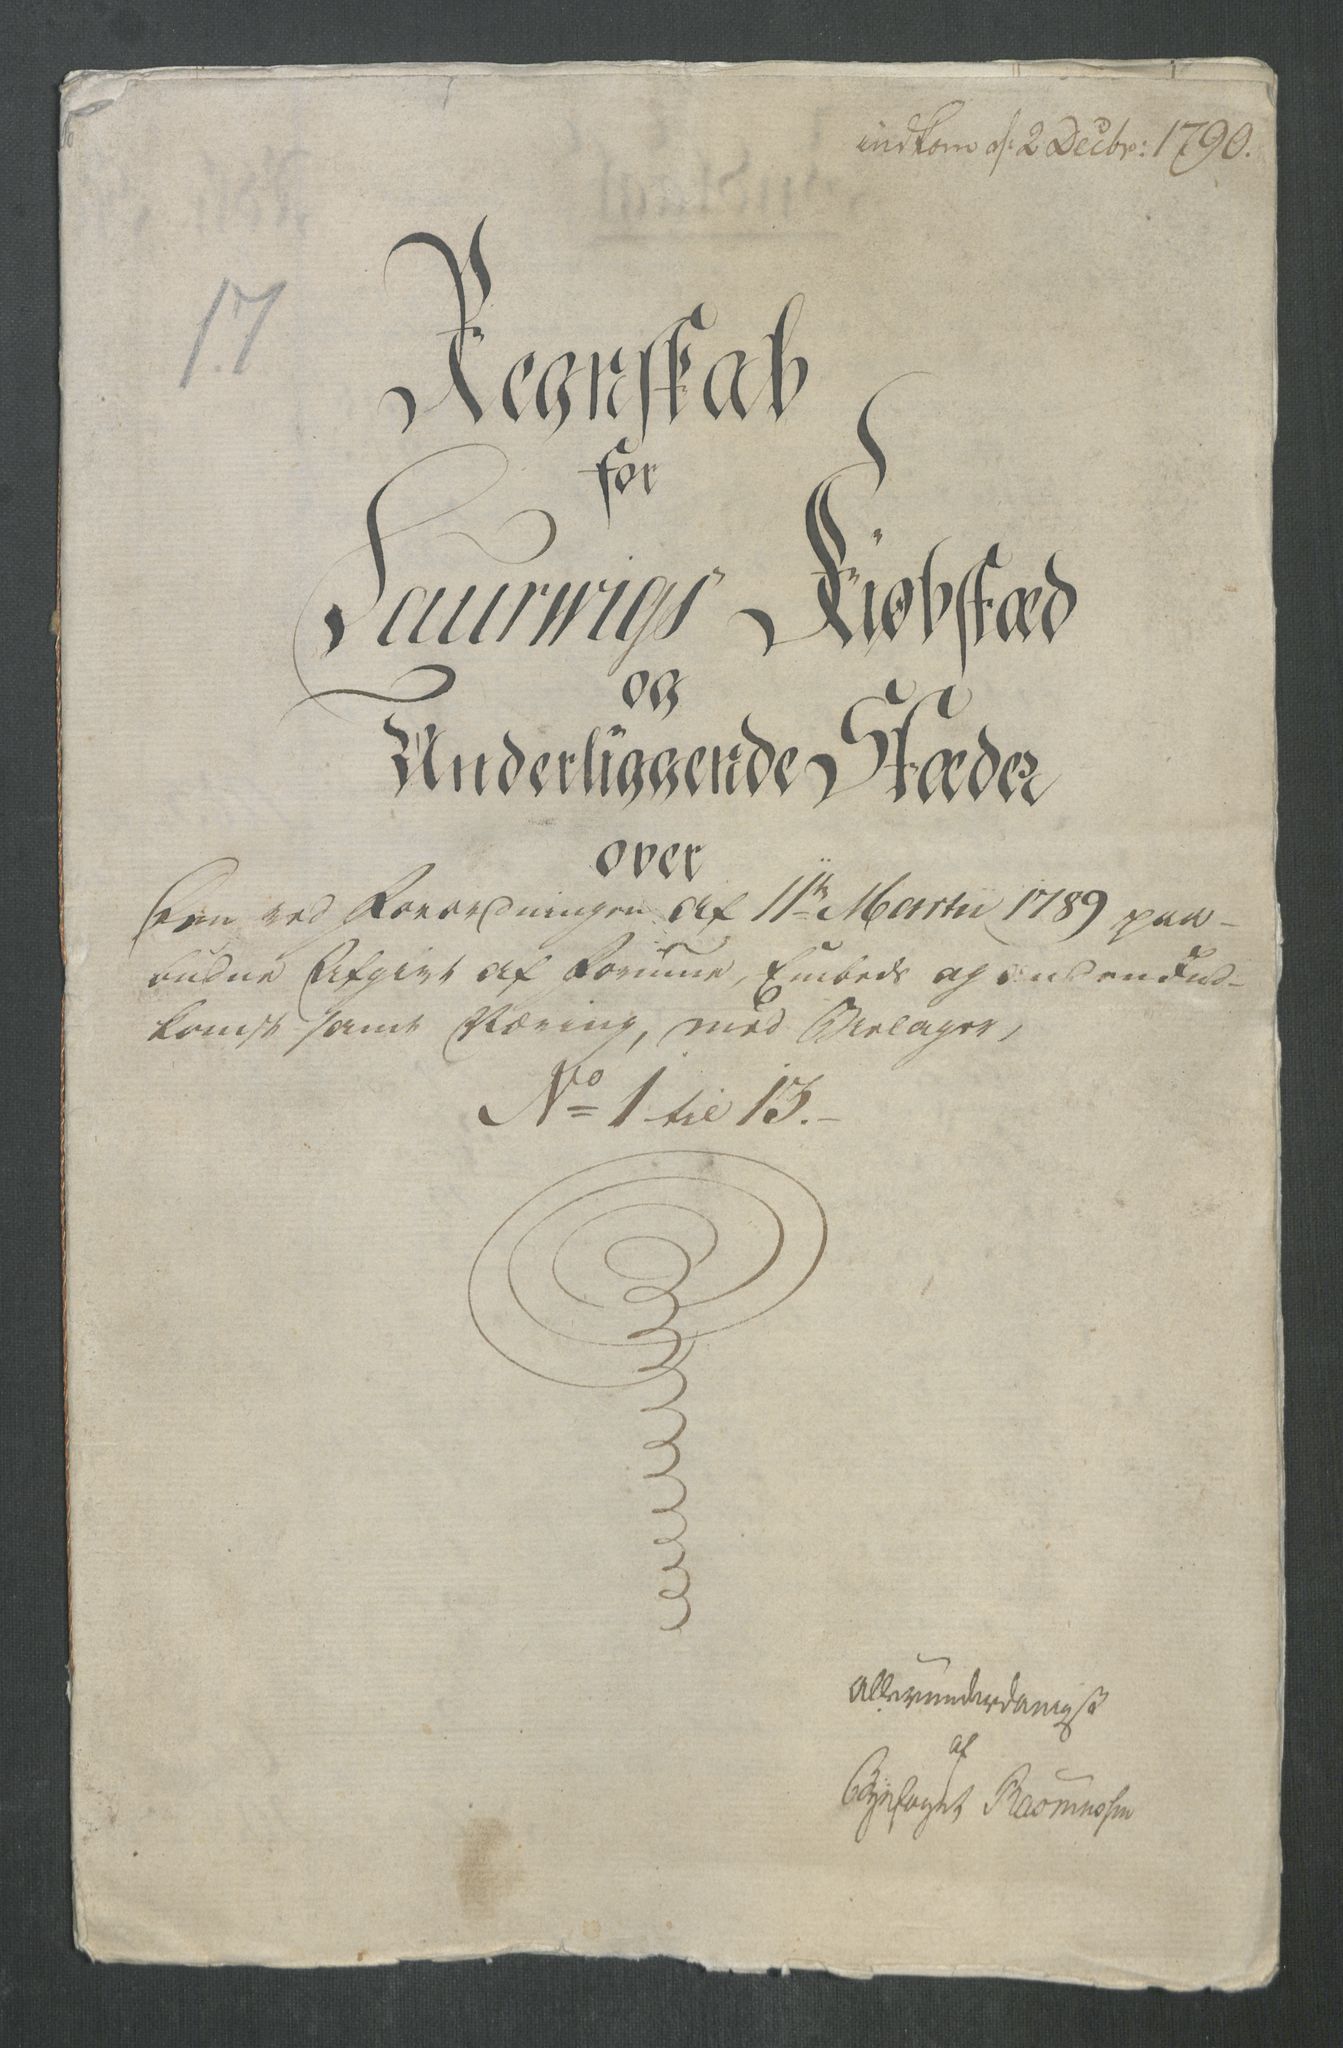 indkom d: 2 Decbr: 1790.
17
Regnskab
for
Laurwigs Kiøbstæd
og
Underliggende Stæder
over
Den ved Forordningen af 11te Martii 1789 paa-
budne Afgivt af Formue, Embeds og anden Ind-
komst samt Næring, med Bielager,
No 1 til 13.
allerunderdanigst
af
Byefoget Rasmusen